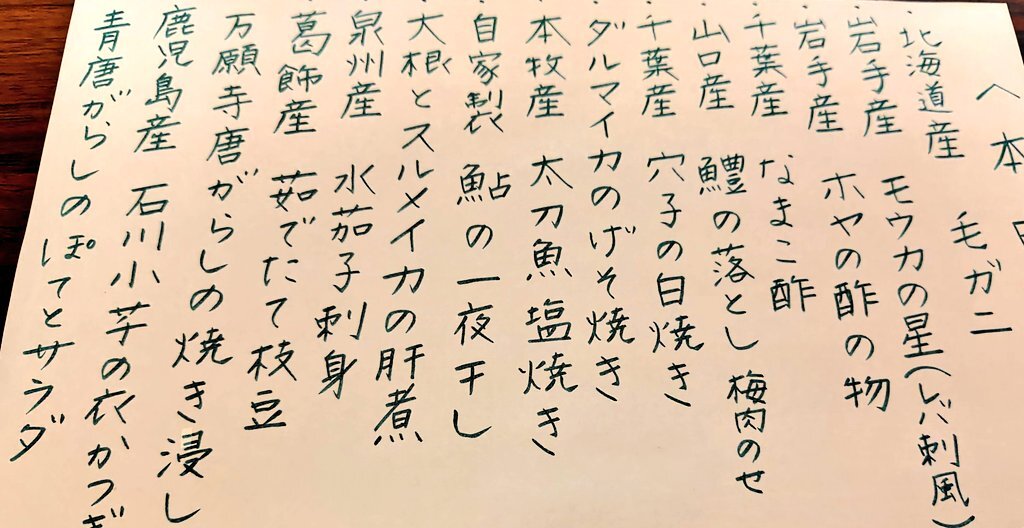 本
・北海道産 毛ガニ
・岩手産 モウカの星(レバ刺風)
・岩手産 ホヤの酢の物
・千葉産 なまこ酢
・山口産 鱧の落とし 梅肉のせ
・千葉産 穴子の白焼き
・ダルマイカのげそ焼き
・本牧産 太刀魚塩焼き
・自家製 鮎の一夜干し
・大根とスルメイカの肝煮
・泉州産 水茄子刺身
・葛飾産 茹でたて枝豆
万願寺唐がらしの焼き浸し
鹿児島産 石川小芋の衣かつぎ
青唐がらしのぽてとサラダ